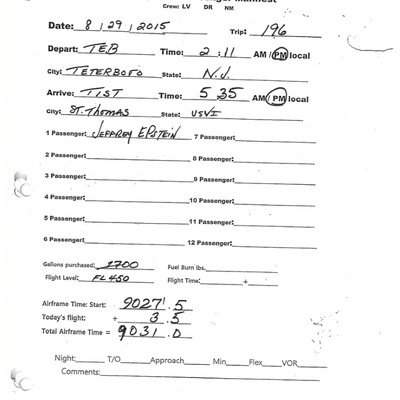 Manifest
Crew: LV DR NM
Date: 8/29/2015 Trip: 196
Depart: TEB Time: 2:11 AM / PM local
City: TETERBORO State: N.J.
Arrive: TIST Time: 5 35 AM / PM local
City: ST. THOMAS State: USVI
1 Passenger: JEFFREY EPSTEIN 7 Passenger:
2 Passenger: 8 Passenger:
3 Passenger: 9 Passenger:
4 Passenger: 10 Passenger:
5 Passenger: 11 Passenger:
6 Passenger: 12 Passenger:
Gallons purchased: 2700 Fuel Burn lbs.
Flight Level: FL450 Flight Time: +
Airframe Time: Start: 9027.5
Today's flight: + 3.5
Total Airframe Time = 9031.0
Night: T/O Approach Min Flex VOR
Comments: